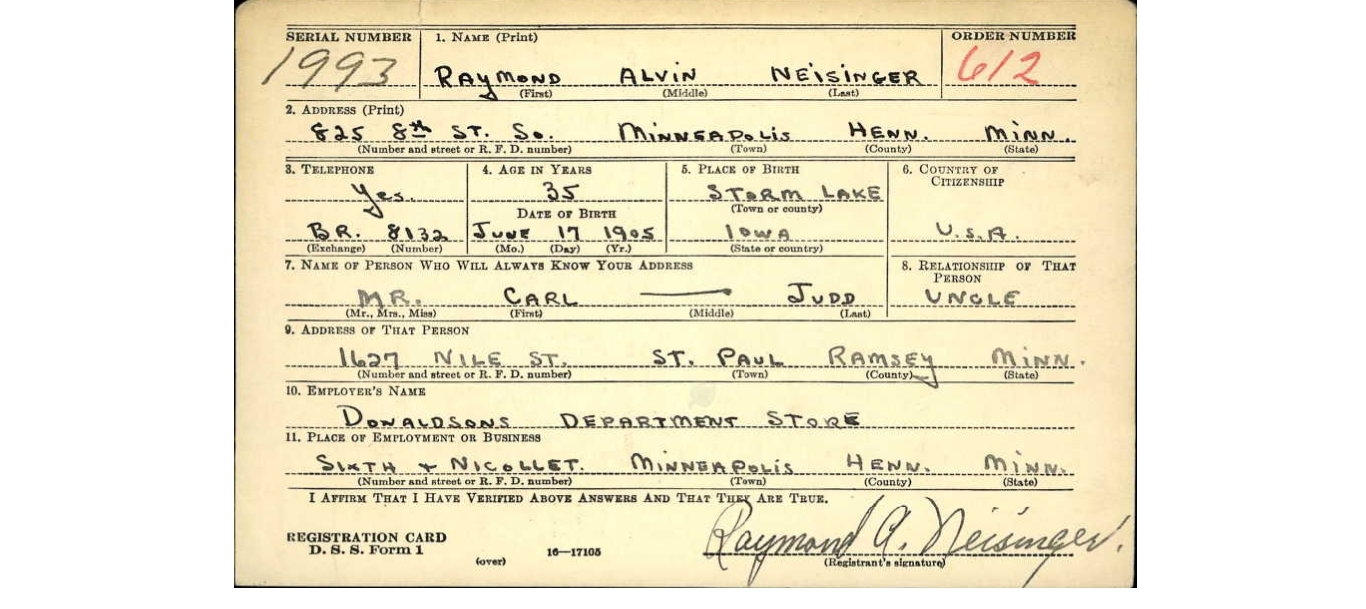 SERIAL NUMBER 1. NAME (Print) ORDER NUMBER
1993 RAYMOND ALVIN NEISINGER 612
(First) (Middle) (Last)
2. ADDRESS (Print)
825 8th ST. So. MINNEAPOLIS HENN. MINN.
(Number and street or R. F. D. number) (Town) (County) (State)
3. TELEPHONE 4. AGE IN YEARS 5. PLACE OF BIRTH 6. COUNTRY OF CITIZENSHIP
Yes. 35 STORM LAKE
DATE OF BIRTH (Town or county)
BR. 8132 JUNE 17 1905 IOWA U.S.A.
(Exchange) (Number) (Mo.) (Day) (Yr.) (State or country)
7. NAME OF PERSON WHO WILL ALWAYS KNOW YOUR ADDRESS 8. RELATIONSHIP OF THAT PERSON
MR. CARL — JUDD UNCLE
(Mr., Mrs., Miss) (First) (Middle) (Last)
9. ADDRESS OF THAT PERSON
1627 NILE ST. ST. PAUL RAMSEY MINN.
(Number and street or R. F. D. number) (Town) (County) (State)
10. EMPLOYER'S NAME
DONALDSONS DEPARTMENT STORE
11. PLACE OF EMPLOYMENT OR BUSINESS
SIXTH + NICOLLET. MINNEAPOLIS HENN. MINN.
(Number and street or R. F. D. number) (Town) (County) (State)
I AFFIRM THAT I HAVE VERIFIED ABOVE ANSWERS AND THAT THEY ARE TRUE.
REGISTRATION CARD Raymond A. Neisinger.
D. S. S. Form 1 16—17105 (Registrant's signature)
(over)